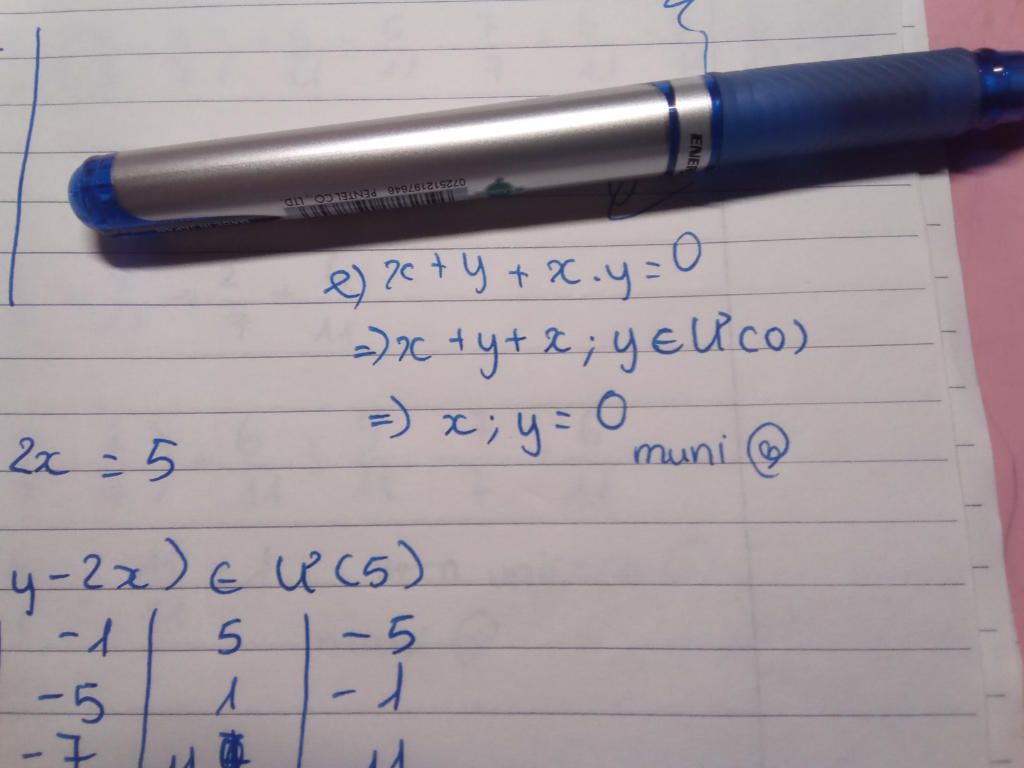 ENER
072512197646 PENTEL CO., LTD
e) x + y + x . y = 0
=) x + y + x ; y ∈ Ư(0)
=) x ; y = 0
muni
2x = 5
y - 2x) ∈ Ư(5)
-1 | 5 | -5
-5 | 1 | -1
-7